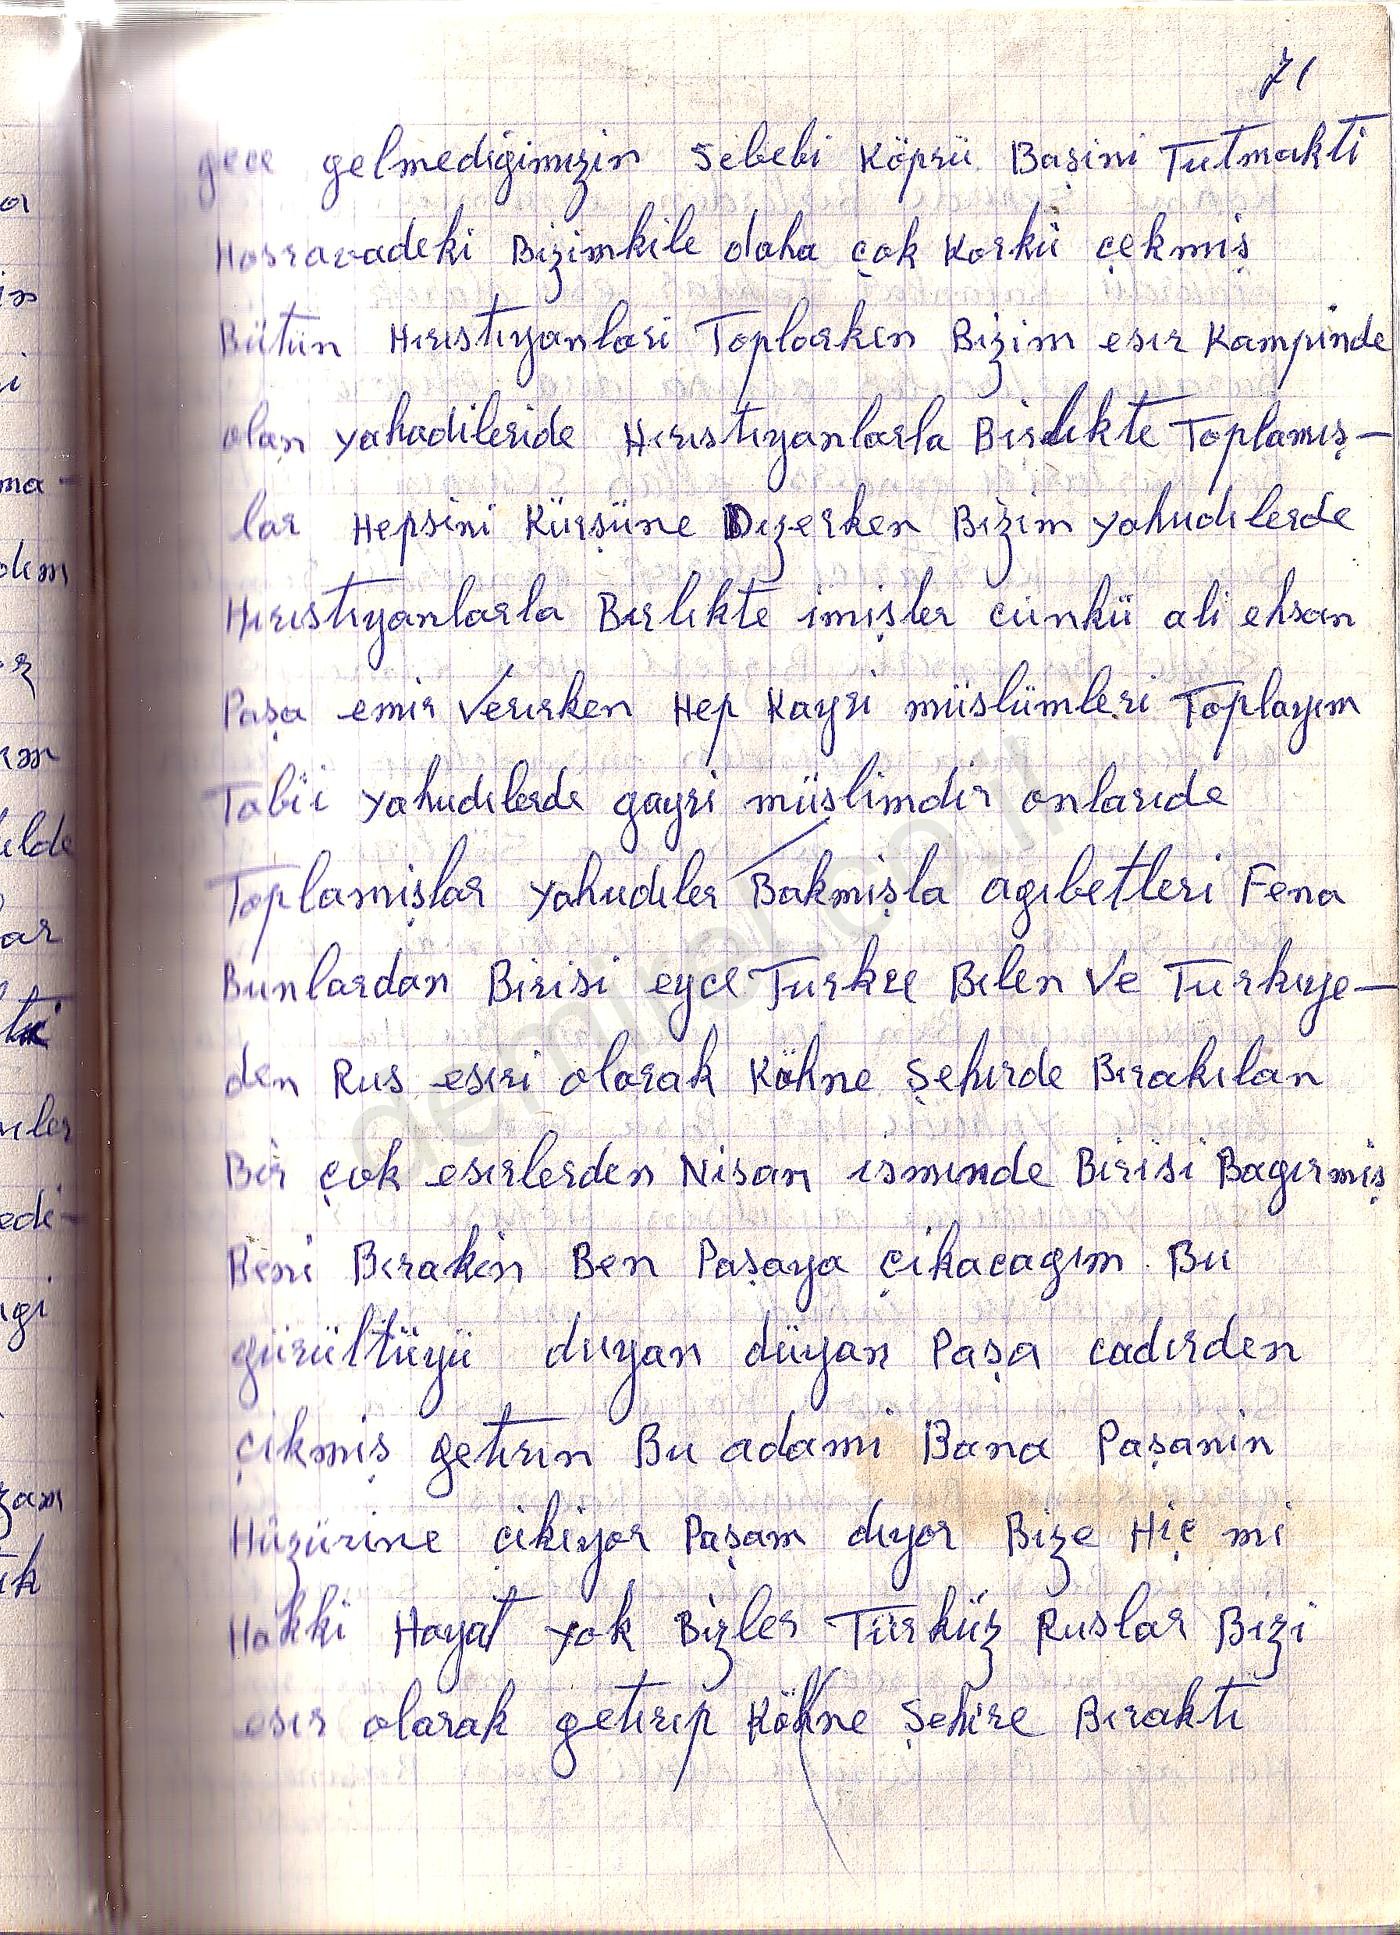 71
gece gelmedigimizin sebebi Köprü Başini Tutmakti
Hosravadeki Bizimkile daha çok Korkü çekmiş
Bütün Hırıstıyanlari Toplarken Bizim esır Kampinde
olan yahadileride Hırıstıyanlarla Birlıkte Toplamış-
lar Hepsini Kürşüne Dızerken Bizim yahudılerde
Hırıstıyanlarla Bırlıkte imişler cünkü ali ehsan
Paşa emir Verırken Hep Kayri müslümleri Toplayım
Tabii yahudılerde gayri müslimdir onlarıde
Toplamişlar yahudıler Bakmişla agıbetleri Fena
Bunlardan Birisi eyce Turkce Bılen Ve Turkıye-
den Rus esıri olarak Köhne şehırde Bırakılan
Bir çok esırlerden Nisan ısmınde Birisi Bagırmiş
Beni Bırakin Ben Paşaya çikacagım Bu
gürültüyü duyan düyan Paşa cadırden
çıkmiş getırın Bu adami Bana Paşanin
Hüzürine çikiyor Paşam dıyor Bize Hiç mi
Hakki Hayat yok Bizler Türküz Ruslar Bızi
esır olarak getırıp Köhne şehire Bıraktı
ıs
ma-
ım
ar
ler
edi-
zam
demirek.co.il